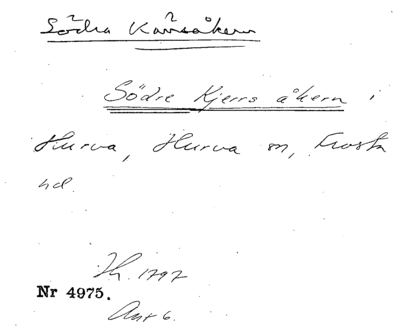 Södra Kärrsåkern
Södre Kjerrs åkern i
Hurva, Hurva sn, Frosta
hd.
1797
Nr 4975.
Akt 6.